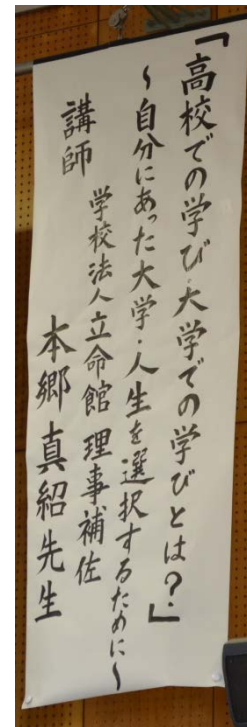 「高校での学び・大学での学びとは?」
~自分にあった大学・人生を選択するために~
講師 学校法人立命館 理事補佐
本郷真紹先生